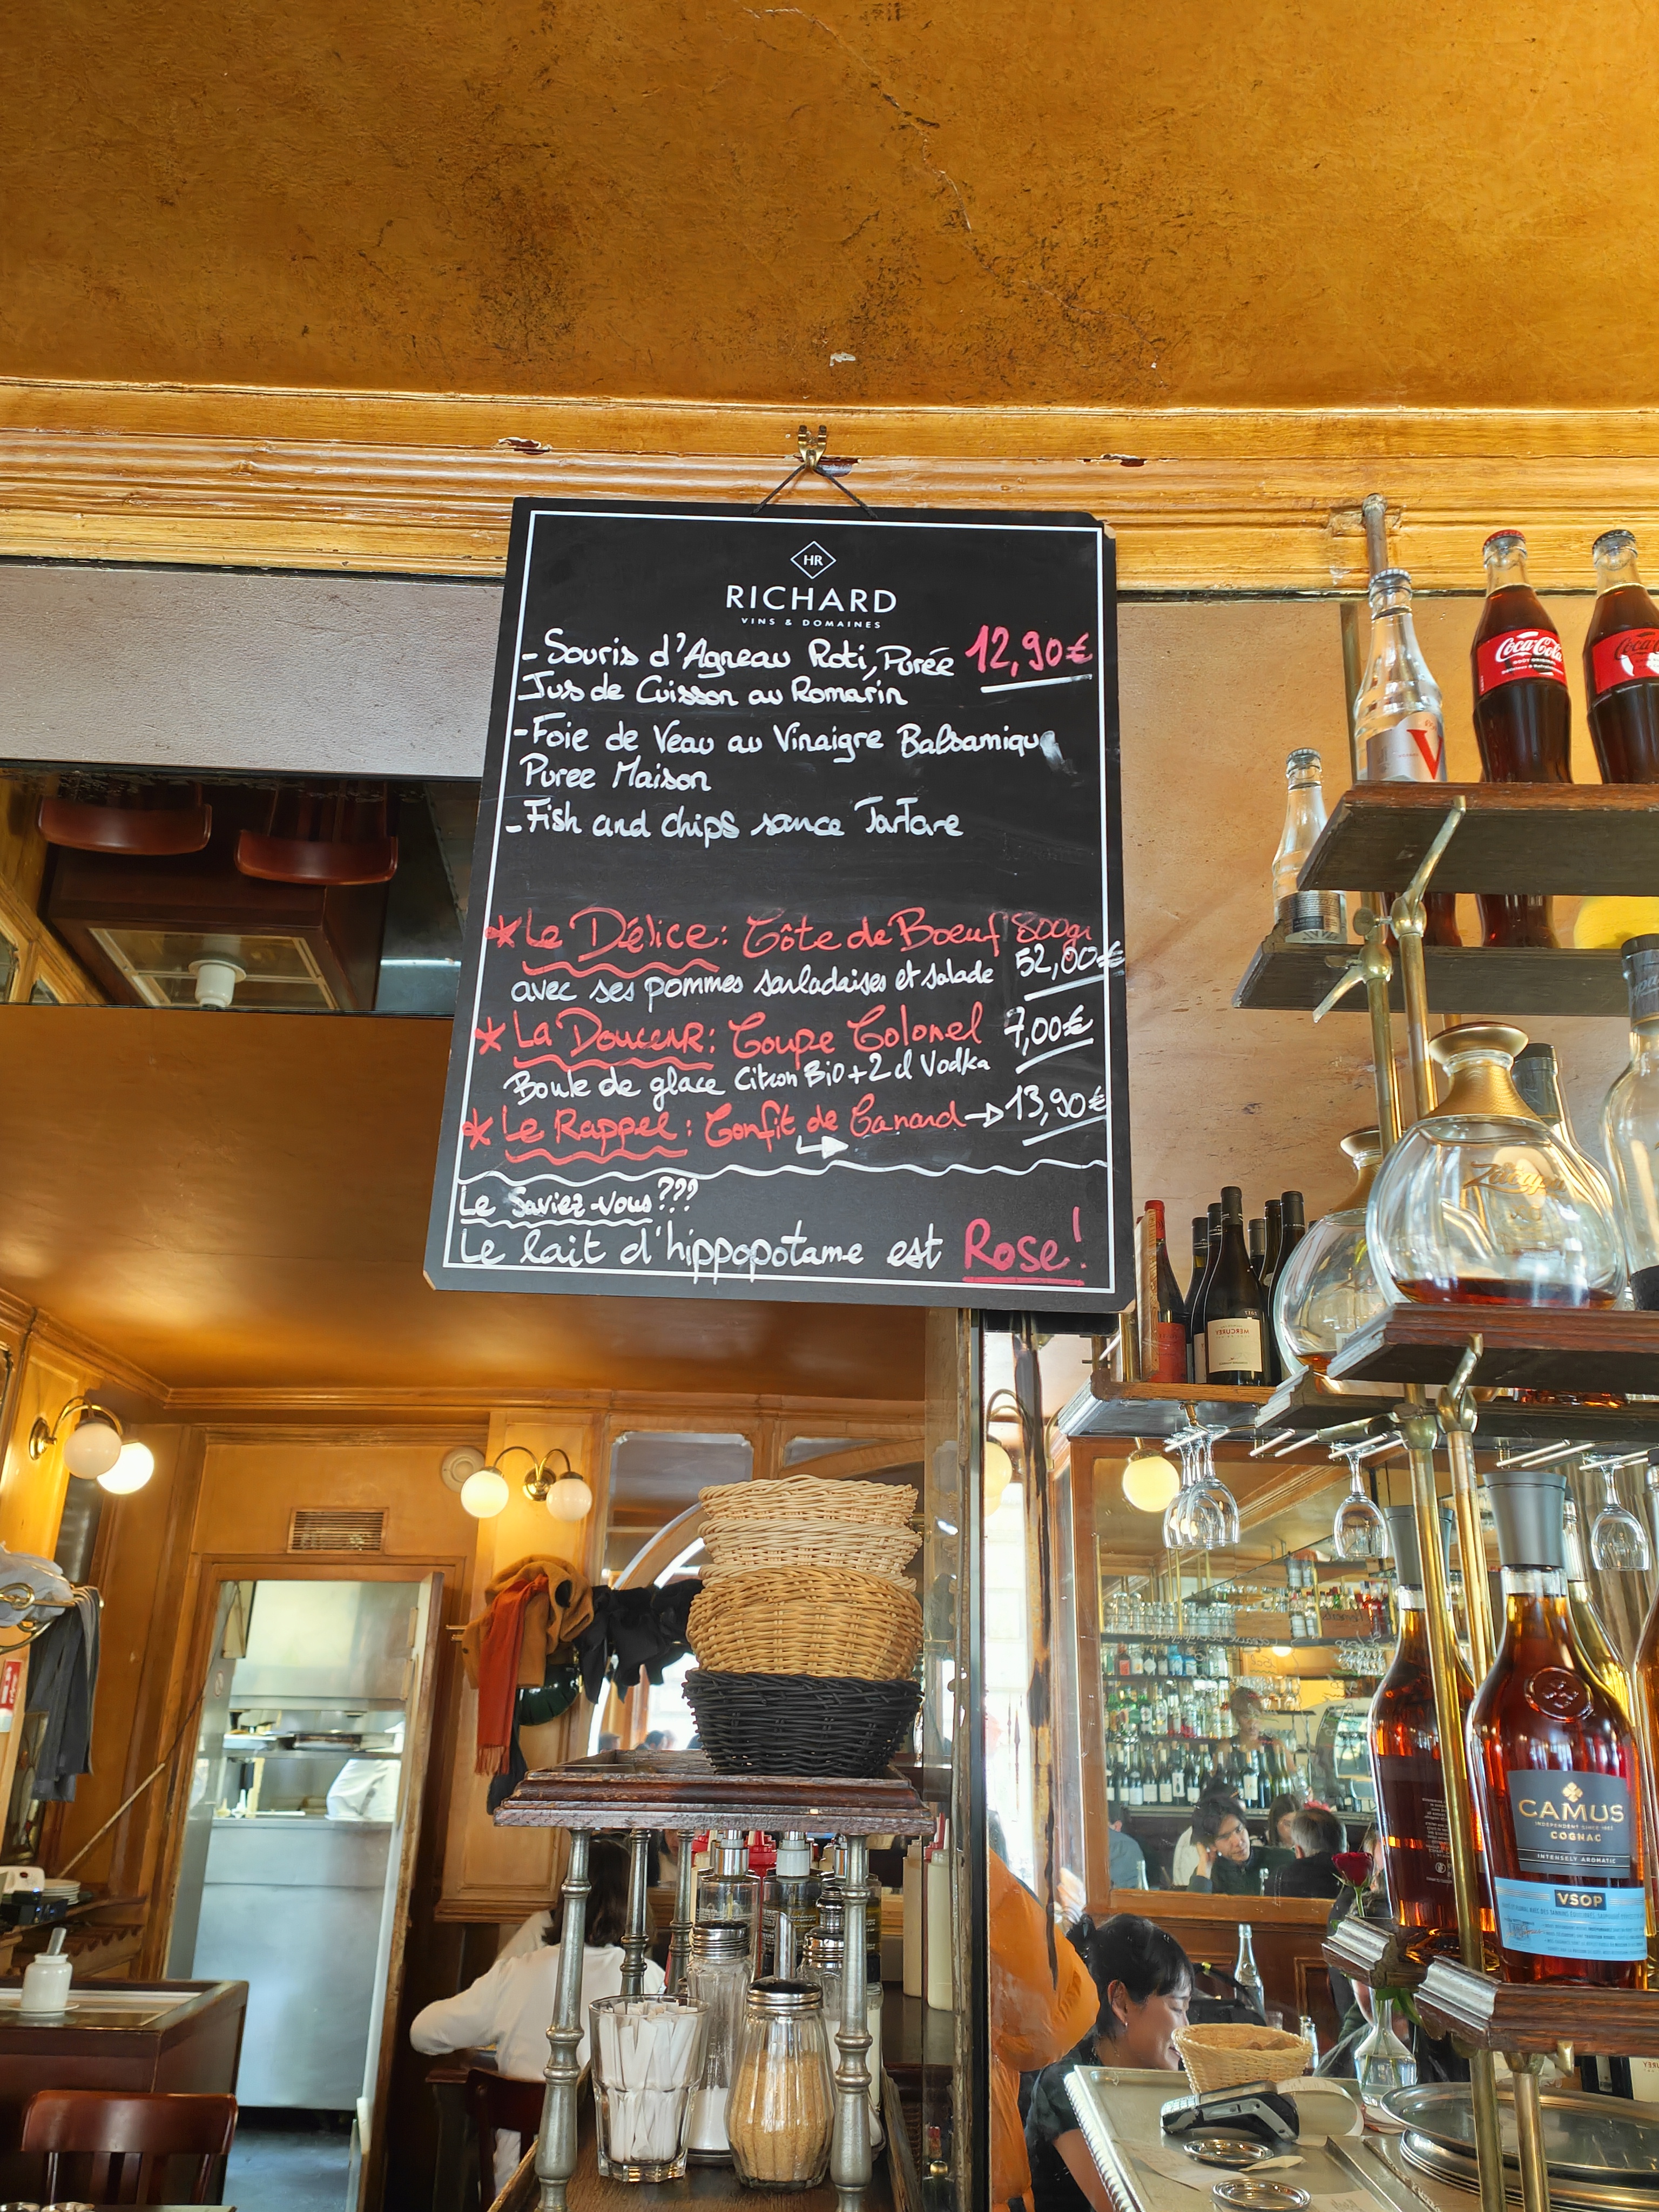 HR
RICHARD
VINS & DOMAINES
- Souris d'Agneau Roti, Purée 12,90€
Jus de Cuisson au Romarin
- Foie de Veau au Vinaigre Balsamique
Puree Maison
- Fish and chips sauce TarTare
* Le Délice : Côte de Boeuf 800gr
avec ses pommes sarladaises et salade 52,00€
* La Douceur : Coupe Colonel 7,00€
Boule de glace Citron Bio + 2 cl Vodka
* Le Rappel : Confit de Canard → 13,90€
Le Saviez-vous ???
Le lait d'hippopotame est Rose !
Coca-Cola
Coca-Cola
V
Zacapa
MERCUREY
CAMUS
INDEPENDENT SINCE 1863
COGNAC
INTENSELY AROMATIC
VSOP